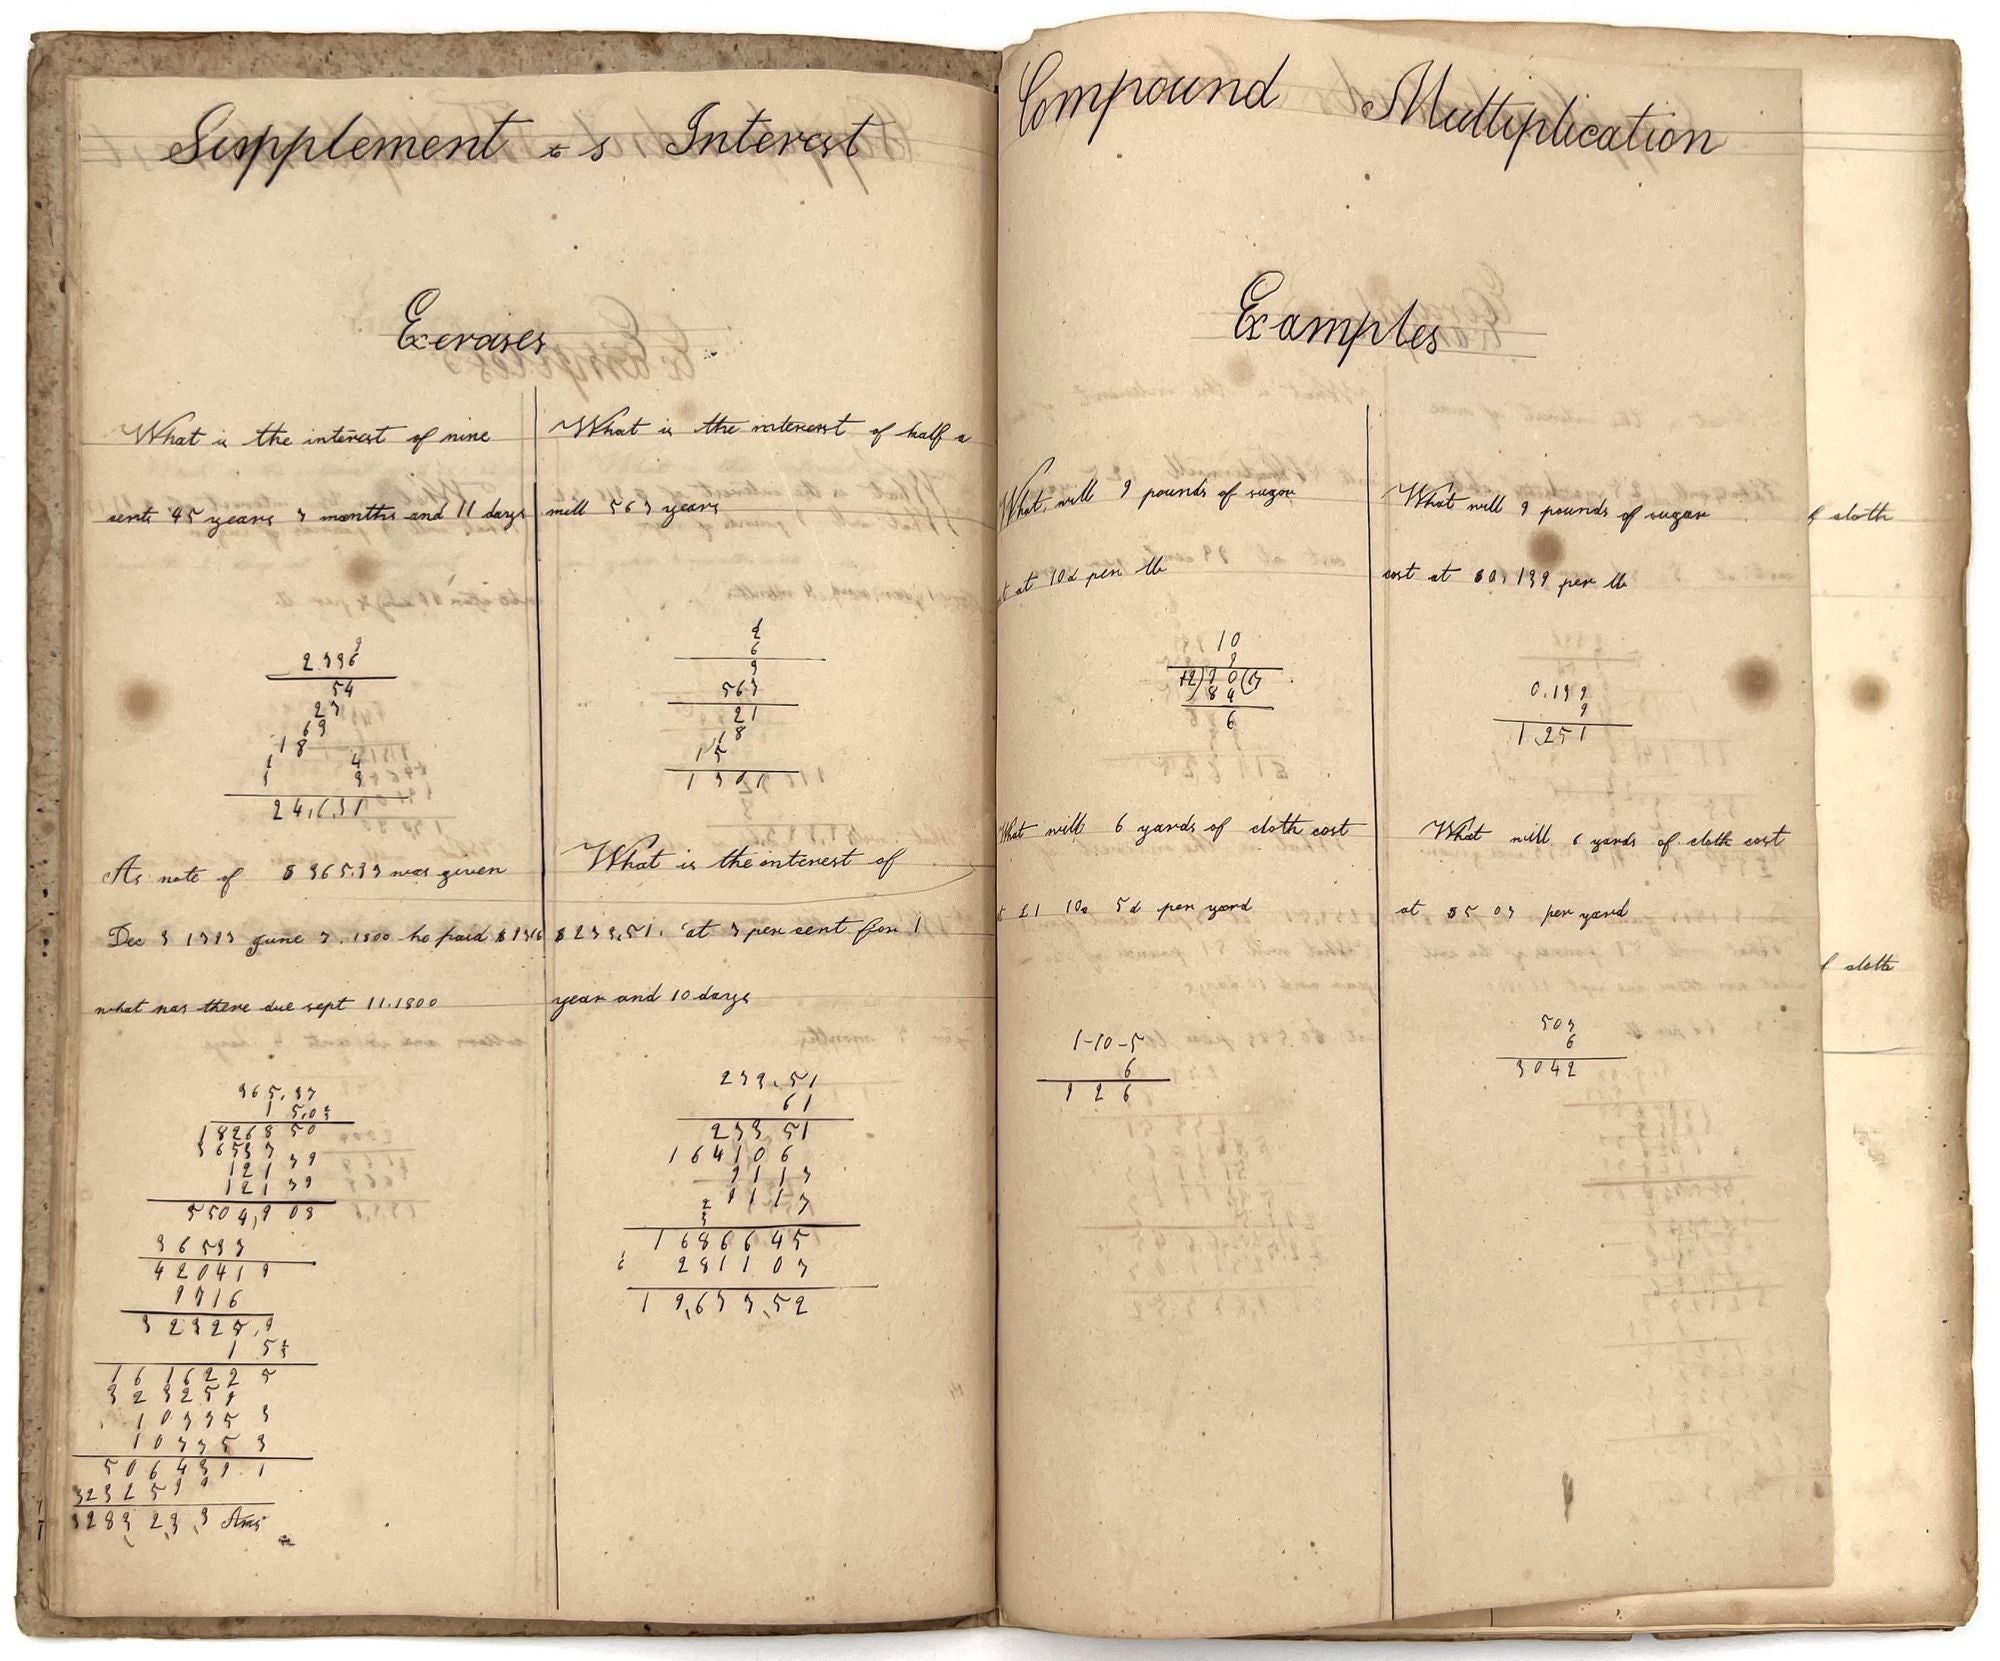 Supplement to s Interest
Exercises
What is the interest of nine
cents 45 years 7 months and 11 days
2.736
9
54
27
63
18
4
24,631
As note of $ 365.37 was given
Dec 3 1797 June 7. 1800 he paid $
what was there due sept 11.1800
365.37
1 5.0
18268 50
36537
121 79
121 79
5504,908
36537
420419
9716
32325,9
1 5
161622 5
323259
10775 3
10775 3
506439 1
Ans
What is the interest of half a
mill 567 years
6
567
21
18
15
1701
What is the interest of
$ 273.51. at 7 per cent for 1
year and 10 days
273.51
61
273 51
164106
9117
9117
1686645
281107
1 9,677,52
Compound Multiplication
Examples
What will 9 pounds of sugar
at 10d per lb
10
9
12)90(7
84
6
What will 9 pounds of sugar
cost at $0,139 per lb
0.139
9
1.251
What will 6 yards of cloth cost
£1 10s 5d per yard
1-10-5
6
9 2 6
What will 6 yards of cloth cost
at $5 07 per yard
507
6
3042
cloth
cloth